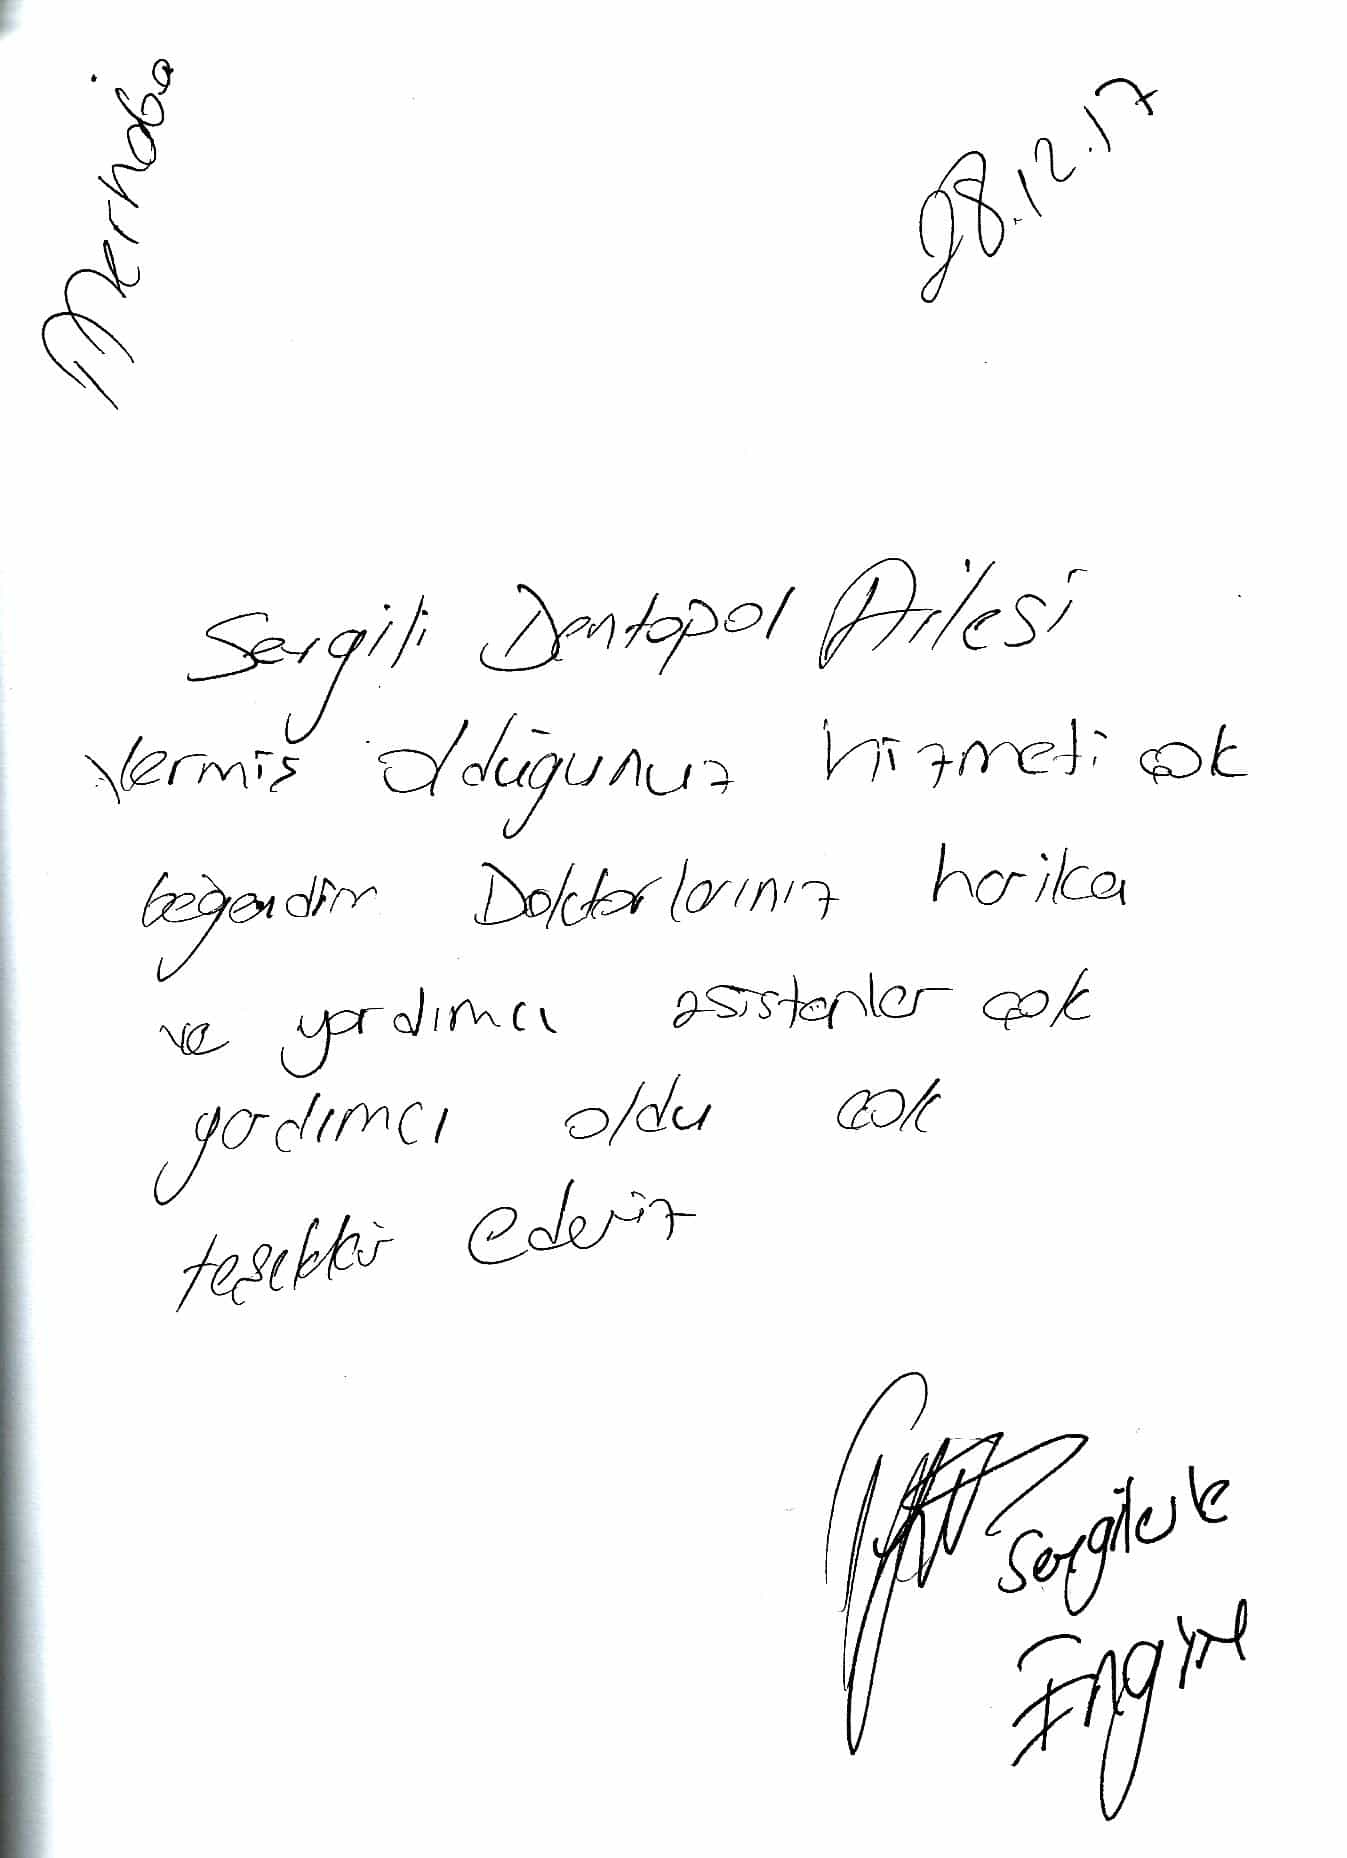 Merhaba
28.12.17
Sevgili Dentapol Ailesi
Vermiş olduğunuz hizmeti çok
beğendim Doktorlarınız harika
ve yardımcı asistenler çok
yardımcı oldu çok
teşekkür ederiz
Sevgilerle
Engin